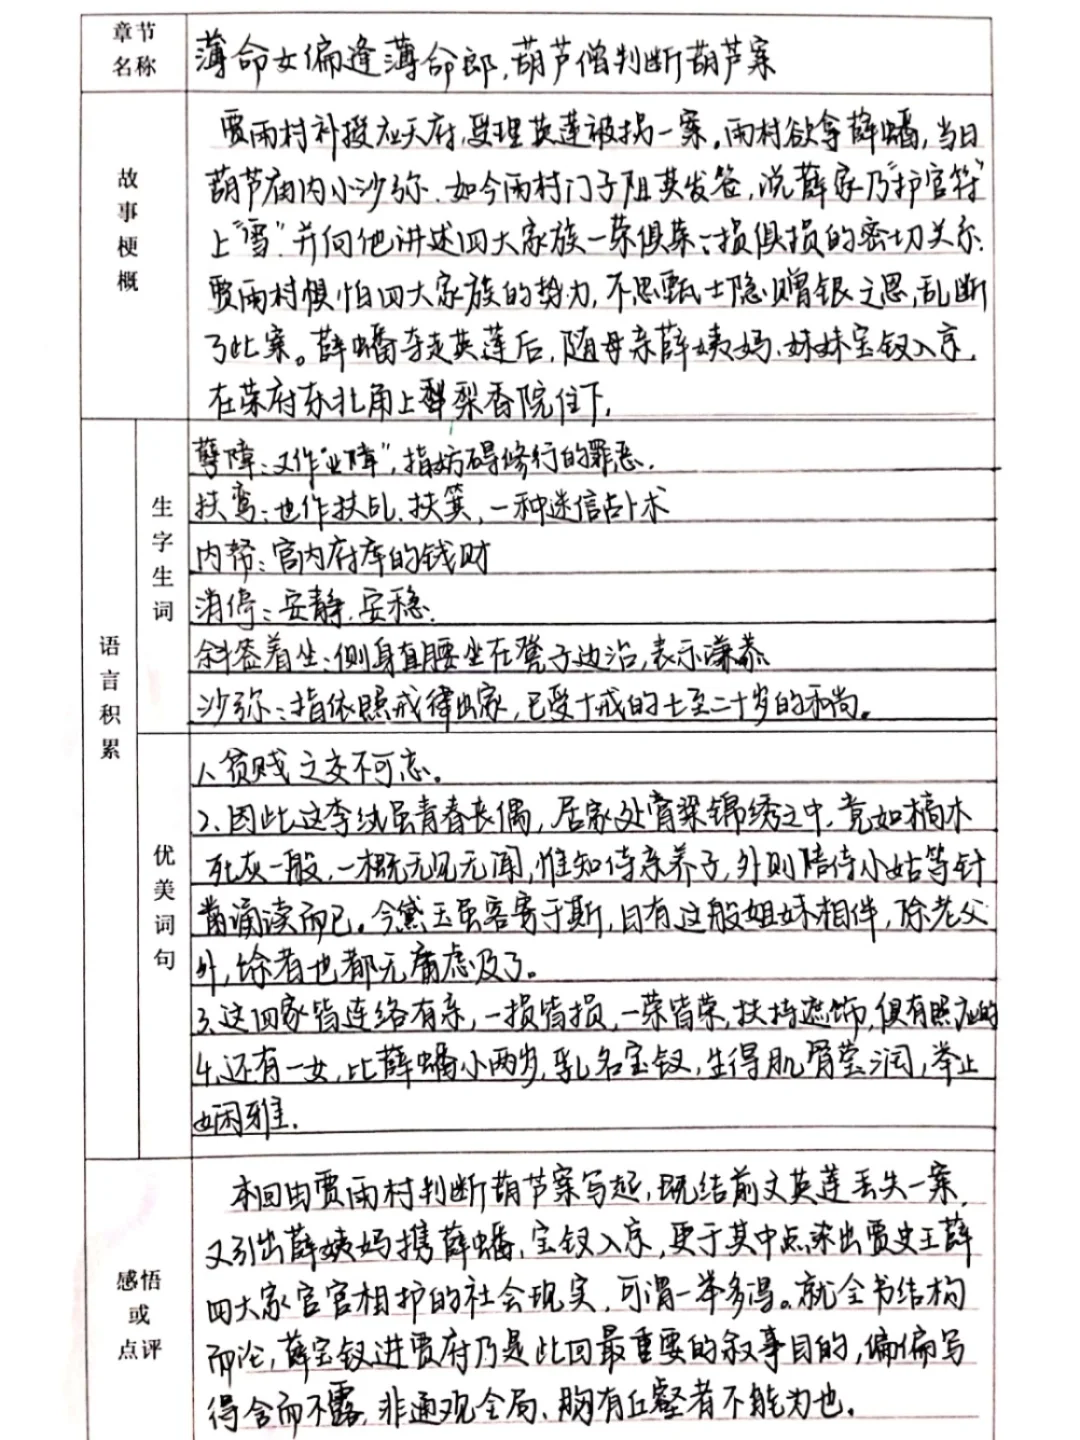 章节名称
薄命女偏逢薄命郎,葫芦僧判断葫芦案
故事梗概
贾雨村补授应天府,受理英莲被拐一案。雨村欲拿薛蟠,当日
葫芦庙内小沙弥、如今雨村门子阻其发签,说薛家乃"护官符"
上"雪",并向他讲述四大家族一荣俱荣、一损俱损的密切关系.
贾雨村惧怕四大家族的势力,不思甄士隐赠银之恩,乱断
了此案。薛蟠夺走英莲后,随母亲薛姨妈、妹妹宝钗入京,
在荣府东北角上梨香院住下.
语言积累
生字生词
孽障:又作"业障",指妨碍修行的罪恶.
扶鸾:也作扶乩、扶箕,一种迷信占卜术
内帑:官内府库的钱财
消停:安静,安稳.
斜签着坐:侧身直腰坐在凳子边沿,表示谦恭
沙弥:指依照戒律出家,已受十戒的七至二十岁的和尚。
优美词句
1.贫贱之交不可忘。
2.因此这李纨虽青春丧偶,居家处膏粱锦绣之中,竟如槁木
死灰一般,一概无见无闻,惟知侍亲养子,外则陪侍小姑等针
黹诵读而已。今黛玉虽客寄于斯,日有这般姐妹相伴,除老父
外,馀者也都无庸虑及了。
3.这四家皆连络有亲,一损皆损,一荣皆荣,扶持遮饰,俱有照应的
4.还有一女,比薛蟠小两岁,乳名宝钗,生得肌骨莹润,举止
娴雅.
感悟或点评
本回由贾雨村判断葫芦案写起,既结前文英莲丢失一案,
又引出薛姨妈携薛蟠,宝钗入京,更于其中点染出贾史王薛
四大家官官相护的社会现实,可谓一举多得。就全书结构
而论,薛宝钗进贾府乃是此回最重要的叙事目的,偏偏写
得含而不露,非通观全局、胸有丘壑者不能为也.